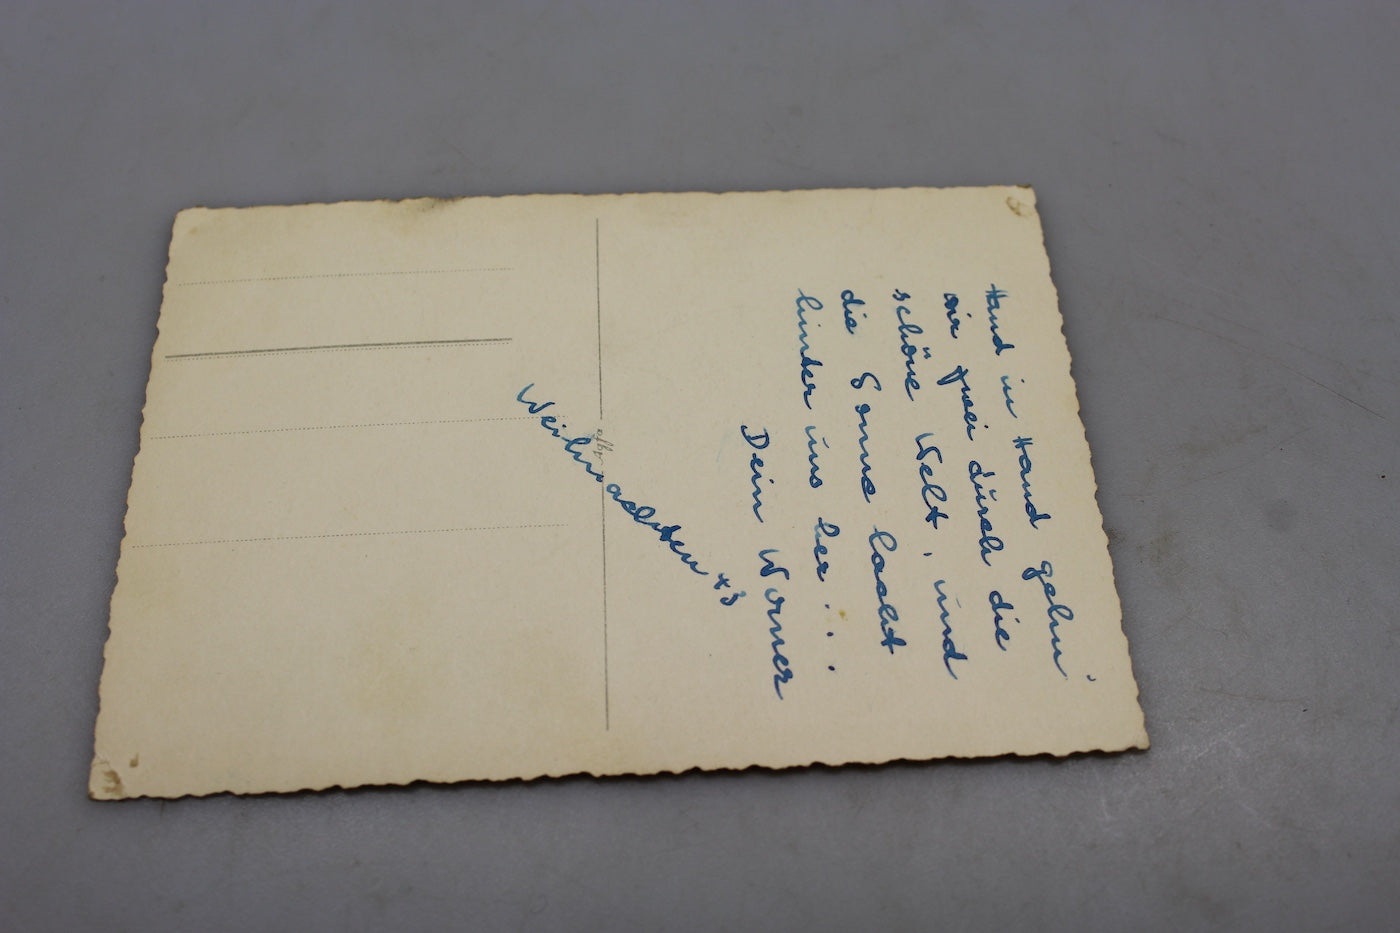 Hand in Hand gehn'
wir zwei durch die
schöne Welt, und
die Sonne lacht
hinter uns her...
Dein Werner
Weihnachten 43